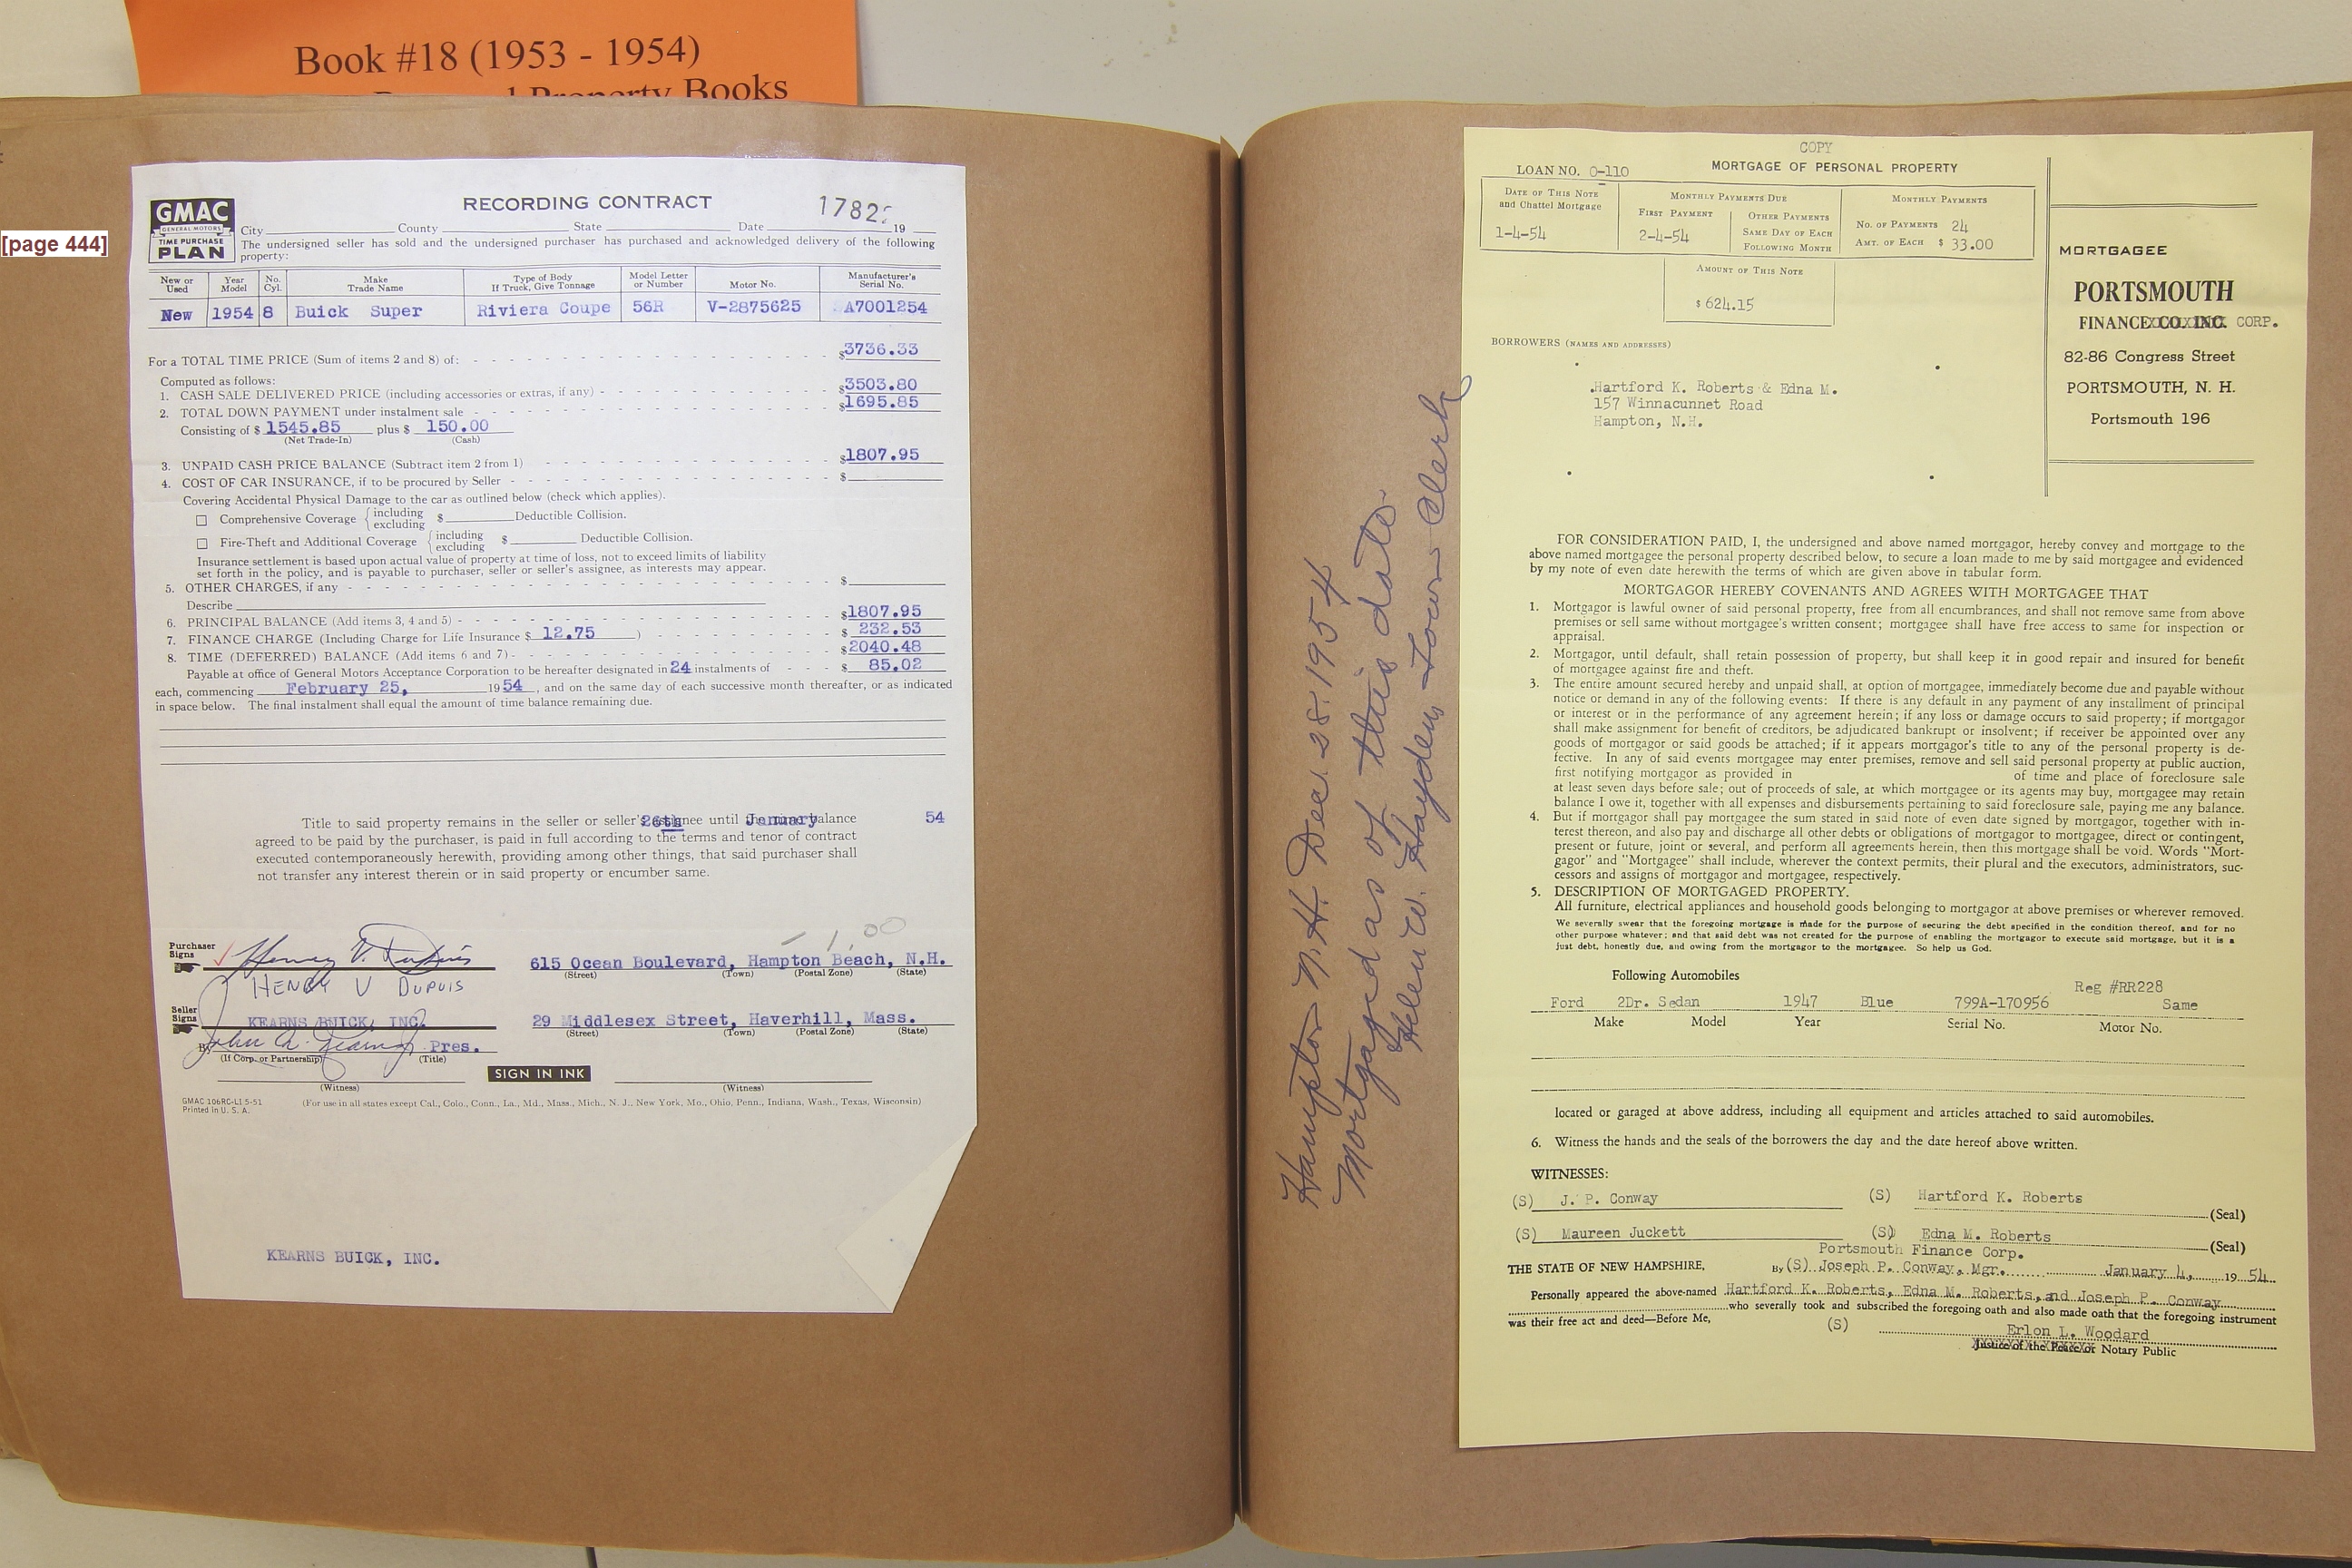 Book #18 (1953 - 1954)
Property Books
[page 444]
GMAC
GENERAL MOTORS
TIME PURCHASE
PLAN
RECORDING CONTRACT
1782
City County State Date 19
The undersigned seller has sold and the undersigned purchaser has purchased and acknowledged delivery of the following
property:
New or Used Year Model No. Cyl. Make Trade Name Type of Body If Truck, Give Tonnage Model Letter or Number Motor No. Manufacturer's Serial No.
New 1954 8 Buick Super Riviera Coupe 56R V-2875625 A7001254
For a TOTAL TIME PRICE (Sum of items 2 and 8) of: $3736.33
Computed as follows:
1. CASH SALE DELIVERED PRICE (including accessories or extras, if any) $3503.80
2. TOTAL DOWN PAYMENT under instalment sale $1695.85
Consisting of $ 1545.85 plus $ 150.00
(Net Trade-In) (Cash)
3. UNPAID CASH PRICE BALANCE (Subtract item 2 from 1) $1807.95
4. COST OF CAR INSURANCE, if to be procured by Seller $
Covering Accidental Physical Damage to the car as outlined below (check which applies).
☐ Comprehensive Coverage { including excluding $ Deductible Collision.
☐ Fire-Theft and Additional Coverage { including excluding $ Deductible Collision.
Insurance settlement is based upon actual value of property at time of loss, not to exceed limits of liability
set forth in the policy, and is payable to purchaser, seller or seller's assignee, as interests may appear.
5. OTHER CHARGES, if any $
Describe
6. PRINCIPAL BALANCE (Add items 3, 4 and 5) $1807.95
7. FINANCE CHARGE (Including Charge for Life Insurance $ 12.75 ) $ 232.53
8. TIME (DEFERRED) BALANCE (Add items 6 and 7) $2040.48
Payable at office of General Motors Acceptance Corporation to be hereafter designated in 24 instalments of $ 85.02
each, commencing February 25, 1954, and on the same day of each successive month thereafter, or as indicated
in space below. The final instalment shall equal the amount of time balance remaining due.
26th January 54
Title to said property remains in the seller or seller's assignee until the time balance
agreed to be paid by the purchaser, is paid in full according to the terms and tenor of contract
executed contemporaneously herewith, providing among other things, that said purchaser shall
not transfer any interest therein or in said property or encumber same.
1.00
Purchaser Signs Henry V. Dupuis 615 Ocean Boulevard, Hampton Beach, N.H.
(Street) (Town) (Postal Zone) (State)
HENRY V DUPUIS
Seller Signs KEARNS BUICK, INC. 29 Middlesex Street, Haverhill, Mass.
(Street) (Town) (Postal Zone) (State)
By John A. Kearns Pres.
(If Corp. or Partnership) (Title)
SIGN IN INK
(Witness) (Witness)
GMAC 106RC-L1 5-51
Printed in U. S. A.
(For use in all states except Cal., Colo., Conn., La., Md., Mass., Mich., N. J., New York, Mo., Ohio, Penn., Indiana, Wash., Texas, Wisconsin)
KEARNS BUICK, INC.
Hampton N.H. Dec. 28, 1954
Mortgaged as of this date
Helen W. Hayden, Town Clerk
COPY
LOAN NO. 0-110 MORTGAGE OF PERSONAL PROPERTY
DATE OF THIS NOTE and CHATTEL MORTGAGE
1-4-54
MONTHLY PAYMENTS DUE
FIRST PAYMENT
2-4-54
OTHER PAYMENTS
SAME DAY OF EACH
FOLLOWING MONTH
MONTHLY PAYMENTS
NO. OF PAYMENTS 24
AMT. OF EACH $ 33.00
AMOUNT OF THIS NOTE
$ 624.15
MORTGAGEE
PORTSMOUTH
FINANCE CO. INC. CORP.
82-86 Congress Street
PORTSMOUTH, N. H.
Portsmouth 196
BORROWERS (NAMES AND ADDRESSES)
Hartford K. Roberts & Edna M.
157 Winnacunnet Road
Hampton, N.H.
FOR CONSIDERATION PAID, I, the undersigned and above named mortgagor, hereby convey and mortgage to the
above named mortgagee the personal property described below, to secure a loan made to me by said mortgagee and evidenced
by my note of even date herewith the terms of which are given above in tabular form.
MORTGAGOR HEREBY COVENANTS AND AGREES WITH MORTGAGEE THAT
1. Mortgagor is lawful owner of said personal property, free from all encumbrances, and shall not remove same from above
premises or sell same without mortgagee's written consent; mortgagee shall have free access to same for inspection or
appraisal.
2. Mortgagor, until default, shall retain possession of property, but shall keep it in good repair and insured for benefit
of mortgagee against fire and theft.
3. The entire amount secured hereby and unpaid shall, at option of mortgagee, immediately become due and payable without
notice or demand in any of the following events: If there is any default in any payment of any installment of principal
or interest or in the performance of any agreement herein; if any loss or damage occurs to said property; if mortgagor
shall make assignment for benefit of creditors, be adjudicated bankrupt or insolvent; if receiver be appointed over any
goods of mortgagor or said goods be attached; if it appears mortgagor's title to any of the personal property is de-
fective. In any of said events mortgagee may enter premises, remove and sell said personal property at public auction,
first notifying mortgagor as provided in of time and place of foreclosure sale
at least seven days before sale; out of proceeds of sale, at which mortgagee or its agents may buy, mortgagee may retain
balance I owe it, together with all expenses and disbursements pertaining to said foreclosure sale, paying me any balance.
4. But if mortgagor shall pay mortgagee the sum stated in said note of even date signed by mortgagor, together with in-
terest thereon, and also pay and discharge all other debts or obligations of mortgagor to mortgagee, direct or contingent,
present or future, joint or several, and perform all agreements herein, then this mortgage shall be void. Words "Mort-
gagor" and "Mortgagee" shall include, wherever the context permits, their plural and the executors, administrators, suc-
cessors and assigns of mortgagor and mortgagee, respectively.
5. DESCRIPTION OF MORTGAGED PROPERTY.
All furniture, electrical appliances and household goods belonging to mortgagor at above premises or wherever removed.
We severally swear that the foregoing mortgage is made for the purpose of securing the debt specified in the condition thereof, and for no
other purpose whatever; and that said debt was not created for the purpose of enabling the mortgagor to execute said mortgage, but it is a
just debt, honestly due, and owing from the mortgagor to the mortgagee. So help us God.
Following Automobiles
Reg #RR228
Ford 2Dr. Sedan 1947 Blue 799A-170956 Same
Make Model Year Serial No. Motor No.
located or garaged at above address, including all equipment and articles attached to said automobiles.
6. Witness the hands and the seals of the borrowers the day and the date hereof above written.
WITNESSES:
(S) J. P. Conway (S) Hartford K. Roberts (Seal)
(S) Maureen Juckett (S) Edna M. Roberts (Seal)
Portsmouth Finance Corp.
THE STATE OF NEW HAMPSHIRE, By (S) Joseph P. Conway, Mgr. January 4, 19 54
Personally appeared the above-named Hartford K. Roberts, Edna M. Roberts, and Joseph P. Conway
who severally took and subscribed the foregoing oath and also made oath that the foregoing instrument
was their free act and deed—Before Me, (S) Erlon L. Woodard
Justice of the Peace or Notary Public